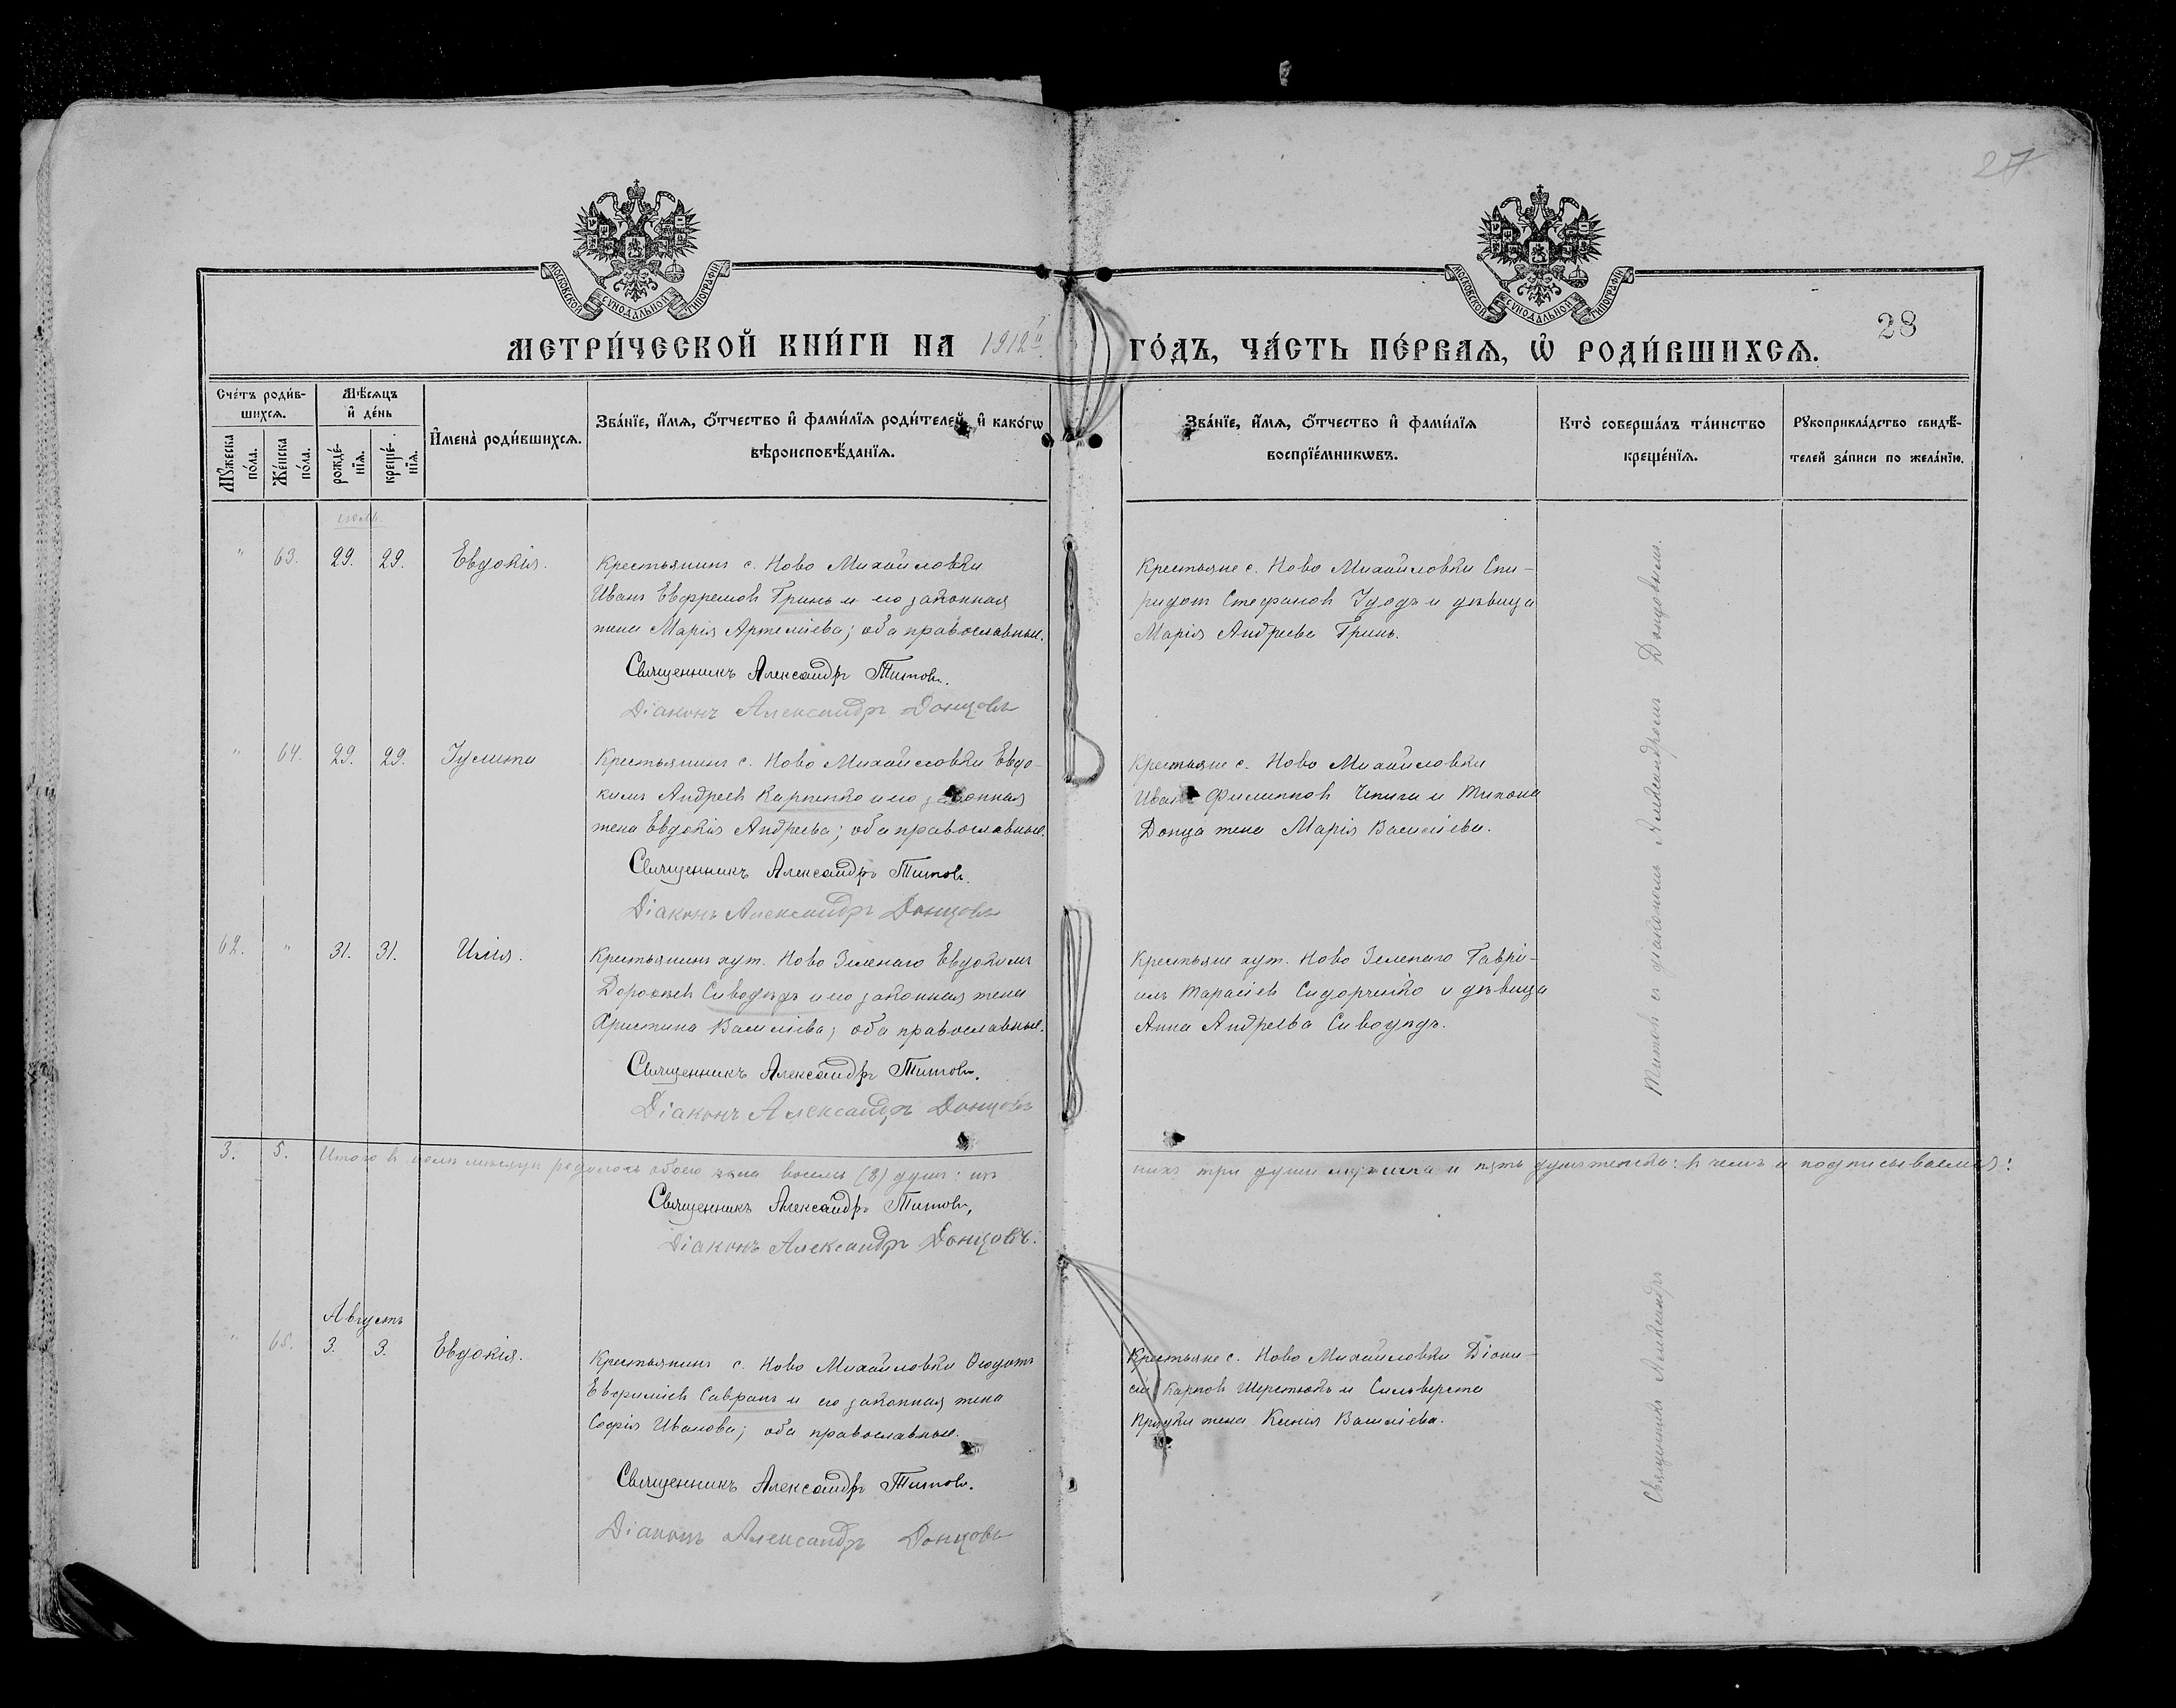 27
28
МОСКОВСКОЙ СѴНОДАЛЬНОЙ ТИПОГРАФІИ
МОСКОВСКОЙ СѴНОДАЛЬНОЙ ТИПОГРАФІИ
МЕТРИ́ЧЕСКОЙ КНИ́ГИ НА 1912й ГО́ДЪ, ЧА́СТЬ ПЕ́РВАѦ, Ѡ҆ РОДИ́ВШИХСѦ.
Сче́тъ роди́в-
шихсѧ.
Мꙋ́жеска по́ла.
Же́нска по́ла.
Мѣ́сѧцъ
и҆ де́нь
рожде́-
нїѧ.
креще́-
нїѧ.
И҆мена̀ роди́вшихсѧ.
Зва́нїе, и҆́мѧ, ѻ҆́тчество и҆ фами́лїѧ роди́телей, и҆ како́гѡ
вѣроисповѣ́данїѧ.
Зва́нїе, и҆́мѧ, ѻ҆́тчество и҆ фами́лїѧ
воспрїе́мникѡвъ.
Кто̀ соверша́лъ та́инство
креще́нїѧ.
Рꙋкоприкла́дство свидѣ́-
телей за́писи по жела́нїю.
июль.
" 63. 29. 29. Евдокія.
Крестьянинъ с. Ново Михайловки
Иванъ Евфремовъ Гринь и его законная
жена Марія Артеміева; оба православные.
Священникъ Александръ Титовъ.
Діаконъ Александръ Донцовъ
Крестьяне с. Ново Михайловки Спи-
ридонъ Стефановъ Удодъ и дѣвица
Марія Андреева Гринь.
" 64. 29. 29. Іулита
Крестьянинъ с. Ново Михайловки Евдо-
кимъ Андреевъ Карпенко и его законная
жена Евдокія Андреева; оба православные.
Священникъ Александръ Титовъ.
Діаконъ Александръ Донцовъ
Крестьяне с. Ново Михайловки
Иванъ Филипповъ Чепига и Тихона
Донца жена Марія Василіева.
62. " 31. 31. Илія.
Крестьянинъ хут. Ново Зеленаго Евдокимъ
Дорофеевъ Сиводѣдъ и его законная жена
Христина Василіева; оба православные.
Священникъ Александръ Титовъ.
Діаконъ Александръ Донцовъ
Крестьяне хут. Ново Зеленаго Гаврі-
илъ Тарасіевъ Сидорченко и дѣвица
Анна Андреева Сиводѣдъ.
3. 5. Итого въ іюлѣ мѣсяцѣ родилось обоего пола восемь (8) душъ: изъ
нихъ три души мужска и пять душъ женска: въ чемъ и подписываемся:
Священникъ Александръ Титовъ,
Діаконъ Александръ Донцовъ.
Августъ
" 65. 3. 3. Евдокія.
Крестьянинъ с. Ново Михайловки Ѳеодотъ
Евфиміевъ Савранъ и его законная жена
Софія Иванова; оба православные.
Священникъ Александръ Титовъ.
Діаконъ Александръ Донцовъ
Крестьяне с. Ново Михайловки Діони-
сій Карповъ Шерстюкъ и Сильверста
жена Ксенія Василіева.
Священникъ Александръ
Титовъ съ діакономъ Александромъ Донцовымъ.